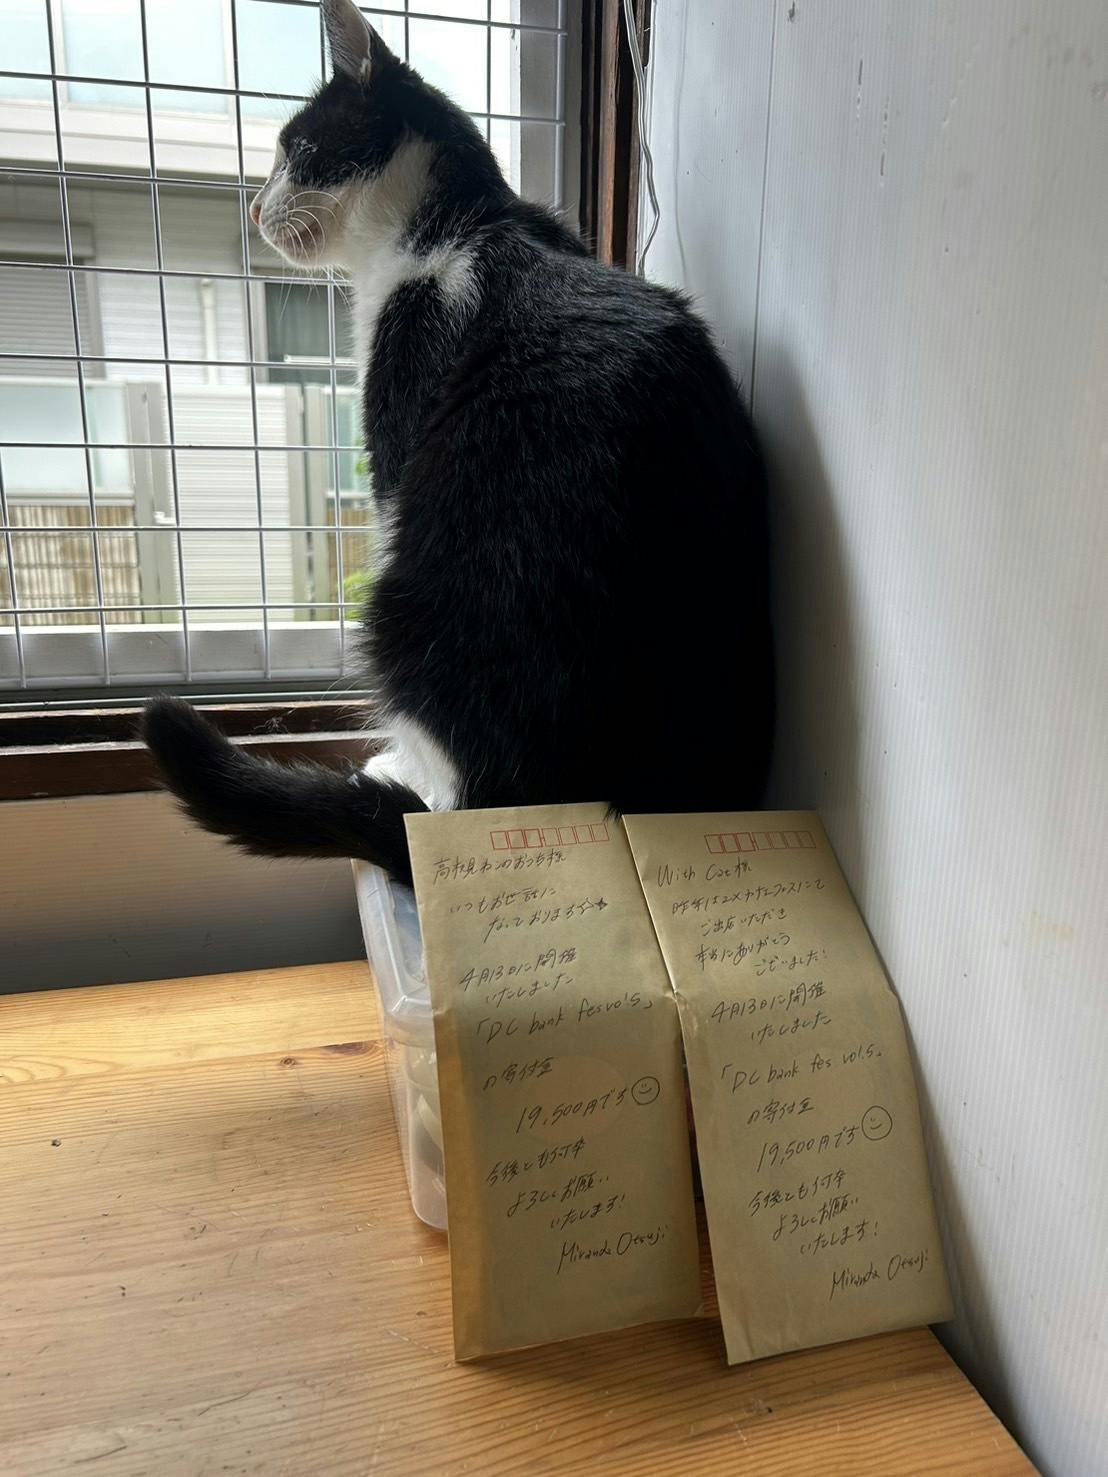 高槻ねこのおうち様
いつもお世話に
なっております☆★
4月13日に開催
いたしました
「DC bank fes vol.5」
の寄付金
19,500円です
今後とも何卒
よろしくお願い
いたします!
Miranda Otsuji
With Cat様
昨年は
ご出店いただき
本当にありがとう
ございました!
4月13日に開催
いたしました
「DC bank fes vol.5」
の寄付金
19,500円です
今後とも何卒
よろしくお願い
いたします!
Miranda Otsuji